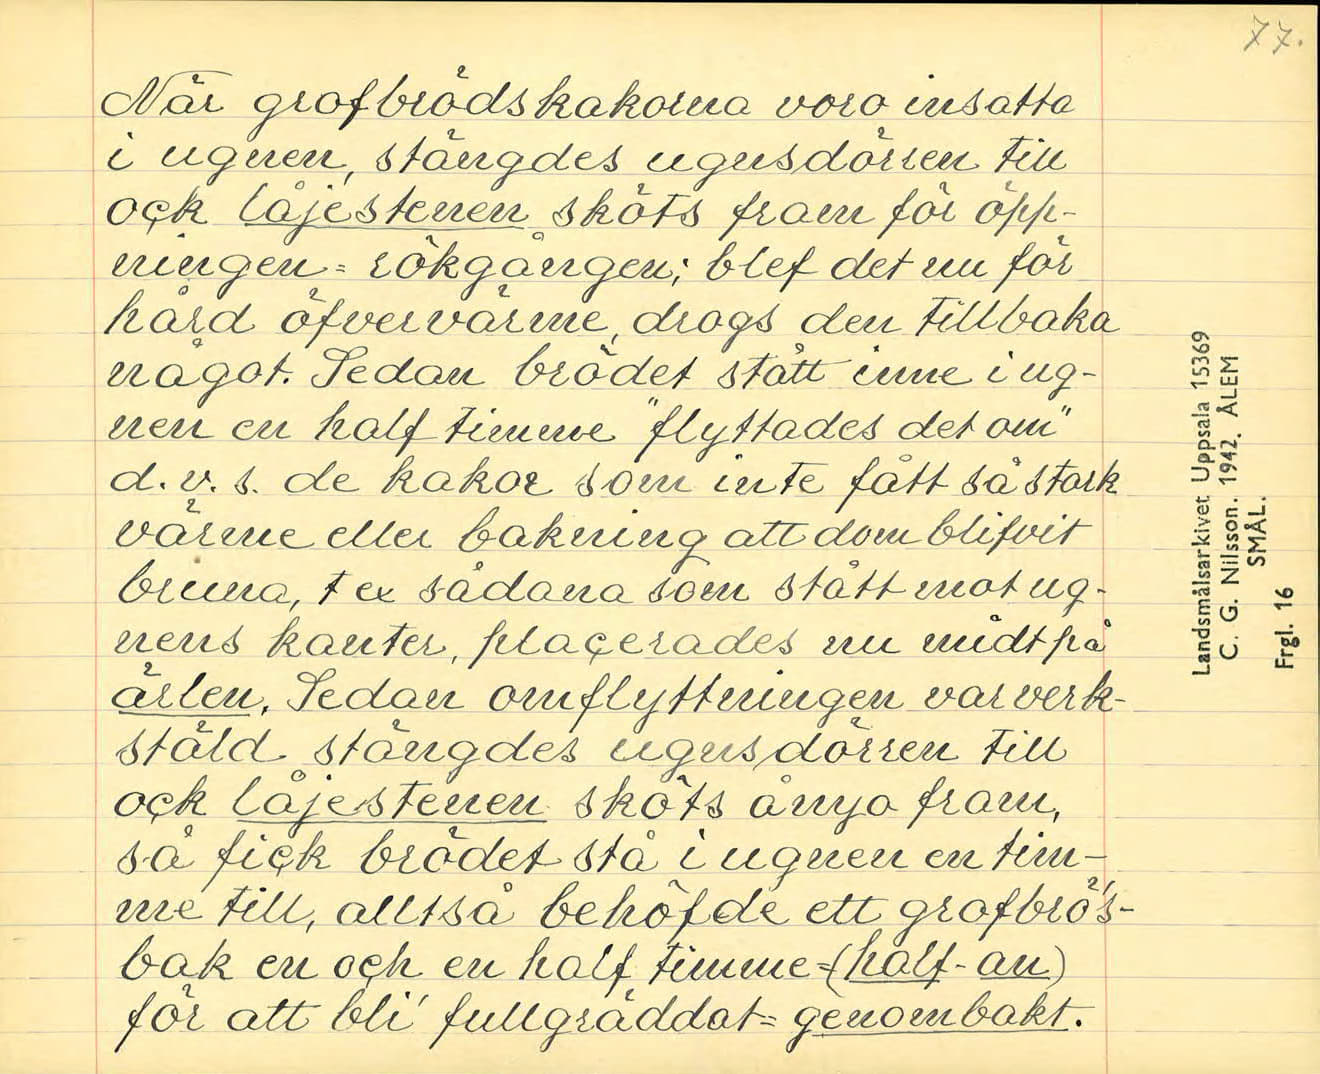 77.
När grofbrödskakorna voro insatta
i ugnen, stängdes ugnsdörren till
ock låjestenen sköts fram för öpp-
ningen = rökgången; blef det nu för
hård öfvervärme, drogs den tillbaka
något. Sedan brödet stått inne i ug-
nen en half timme "flyttades det om"
d.v.s. de kakor som inte fått så stark
värme eller bakning att dom blifvit
bruna, t ex sådana som stått mot ug-
nens kanter, placerades nu midt på
ärlen. Sedan omflyttningen var verk-
ställd stängdes ugnsdörren till
ock låjestenen sköts ånyo fram,
så fick brödet stå i ugnen en tim-
me till, alltså behöfde ett grofbrö's-
bak en och en half timme =(half-an)
för att bli' fullgräddat = genombakt.
Landsmålsarkivet Uppsala 15369
C. G. Nilsson. 1942. ÅLEM
SMÅL.
Frgl. 16